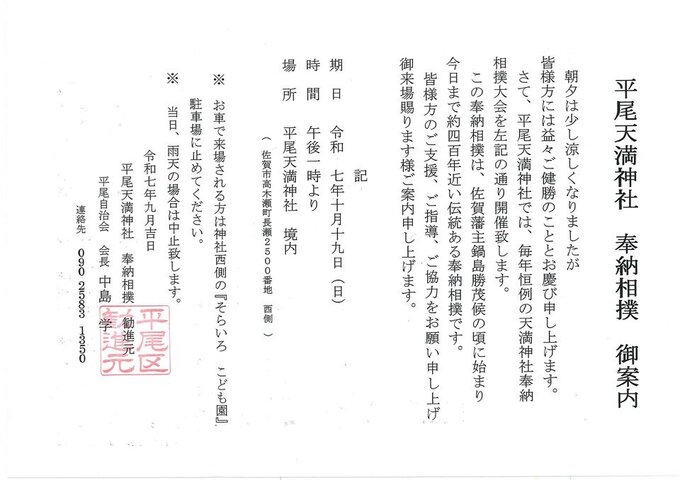 平尾天満神社　奉納相撲　御案内
朝夕は少し涼しくなりましたが
皆様方には益々ご健勝のこととお慶び申し上げます。
さて、平尾天満神社では、毎年恒例の天満神社奉納
相撲大会を左記の通り開催致します。
この奉納相撲は、佐賀藩主鍋島勝茂候の頃に始まり
今日まで約四百年近い伝統ある奉納相撲です。
皆様方のご支援、ご指導、ご協力をお願い申し上げ
御来場賜ります様ご案内申し上げます。
記
期　日　令和　七年十月十九日（日）
時　間　午後一時より
場　所　平尾天満神社　境内
（佐賀市高木瀬町長瀬2500番地　西側）
※　お車で来場される方は神社西側の『そらいろ　こども園』
駐車場に止めてください。
※　当日、雨天の場合は中止致します。
令和七年九月吉日
平尾天満神社　奉納相撲　勧進元
平尾自治会　会長　中島　学
平尾区
勧進元
連絡先　090 2583 1350